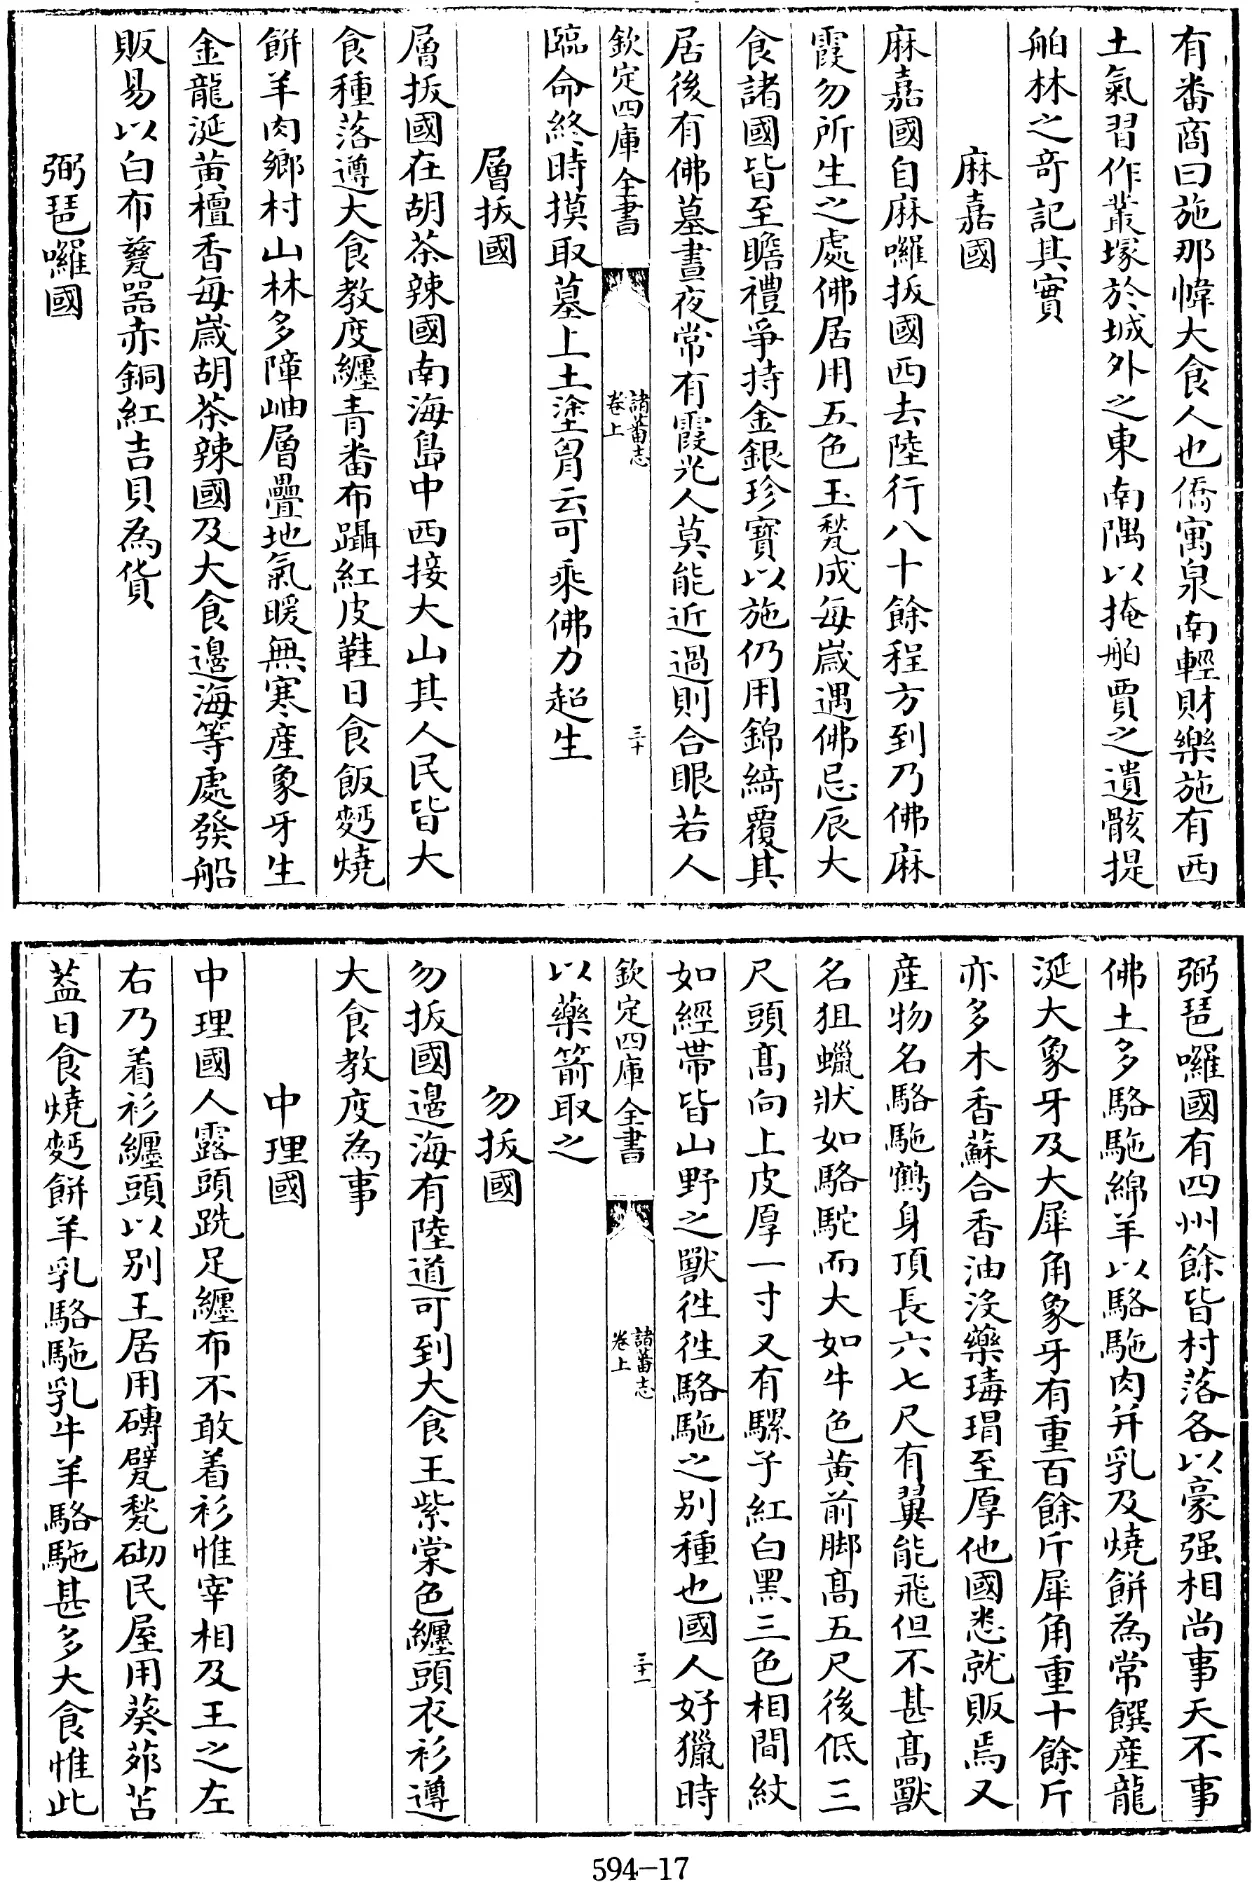 有畨商曰施那幃大食人也僑寓泉南輕財樂施有西
土氣習作叢塚於城外之東南隅以掩舶賈之遺骸提
舶林之竒記其實
麻嘉國
麻嘉國自麻囉拔國西去陸行八十餘程方到乃佛麻
霞勿所生之處佛居用五色玉甃成每歲遇佛忌辰大
食諸國皆至瞻禮爭持金銀珍寶以施仍用錦綺覆其
居後有佛墓晝夜常有霞光人莫能近過則合眼若人
欽定四庫全書
諸蕃志
卷上
三十
臨命終時摸取墓上土塗胷云可乘佛力超生
層拔國
層拔國在胡茶辣國南海島中西接大山其人民皆大
食種落遵大食教度纏青畨布躡紅皮鞋日食飯麫燒
餅羊肉鄉村山林多障岫層疊地氣暖無寒産象牙生
金龍涎黄檀香每歲胡茶辣國及大食邊海等處發船
販易以白布甆器赤銅紅吉貝為貨
弼琶囉國
弼琶囉國有四州餘皆村落各以豪强相尚事天不事
佛土多駱駞綿羊以駱駞肉并乳及燒餅為常饌産龍
涎大象牙及大犀角象牙有重百餘斤犀角重十餘斤
亦多木香蘇合香油沒藥瑇瑁至厚他國悉就販焉又
産物名駱駞鶴身頂長六七尺有翼能飛但不甚髙獸
名狙蠟狀如駱駝而大如牛色黄前脚髙五尺後低三
尺頭髙向上皮厚一寸又有騾子紅白黑三色相間紋
如經帶皆山野之獸徃徃駱駞之别種也國人好獵時
欽定四庫全書
諸蕃志
卷上
三十一
以藥箭取之
勿拔國
勿拔國邊海有陸道可到大食王紫棠色纏頭衣衫遵
大食教度為事
中理國
中理國人露頭跣足纏布不敢着衫惟宰相及王之左
右乃着衫纏頭以别王居用磚甓甃砌民屋用葵茆苫
葢日食燒麫餅羊乳駱駞乳牛羊駱駞甚多大食惟此
594-17